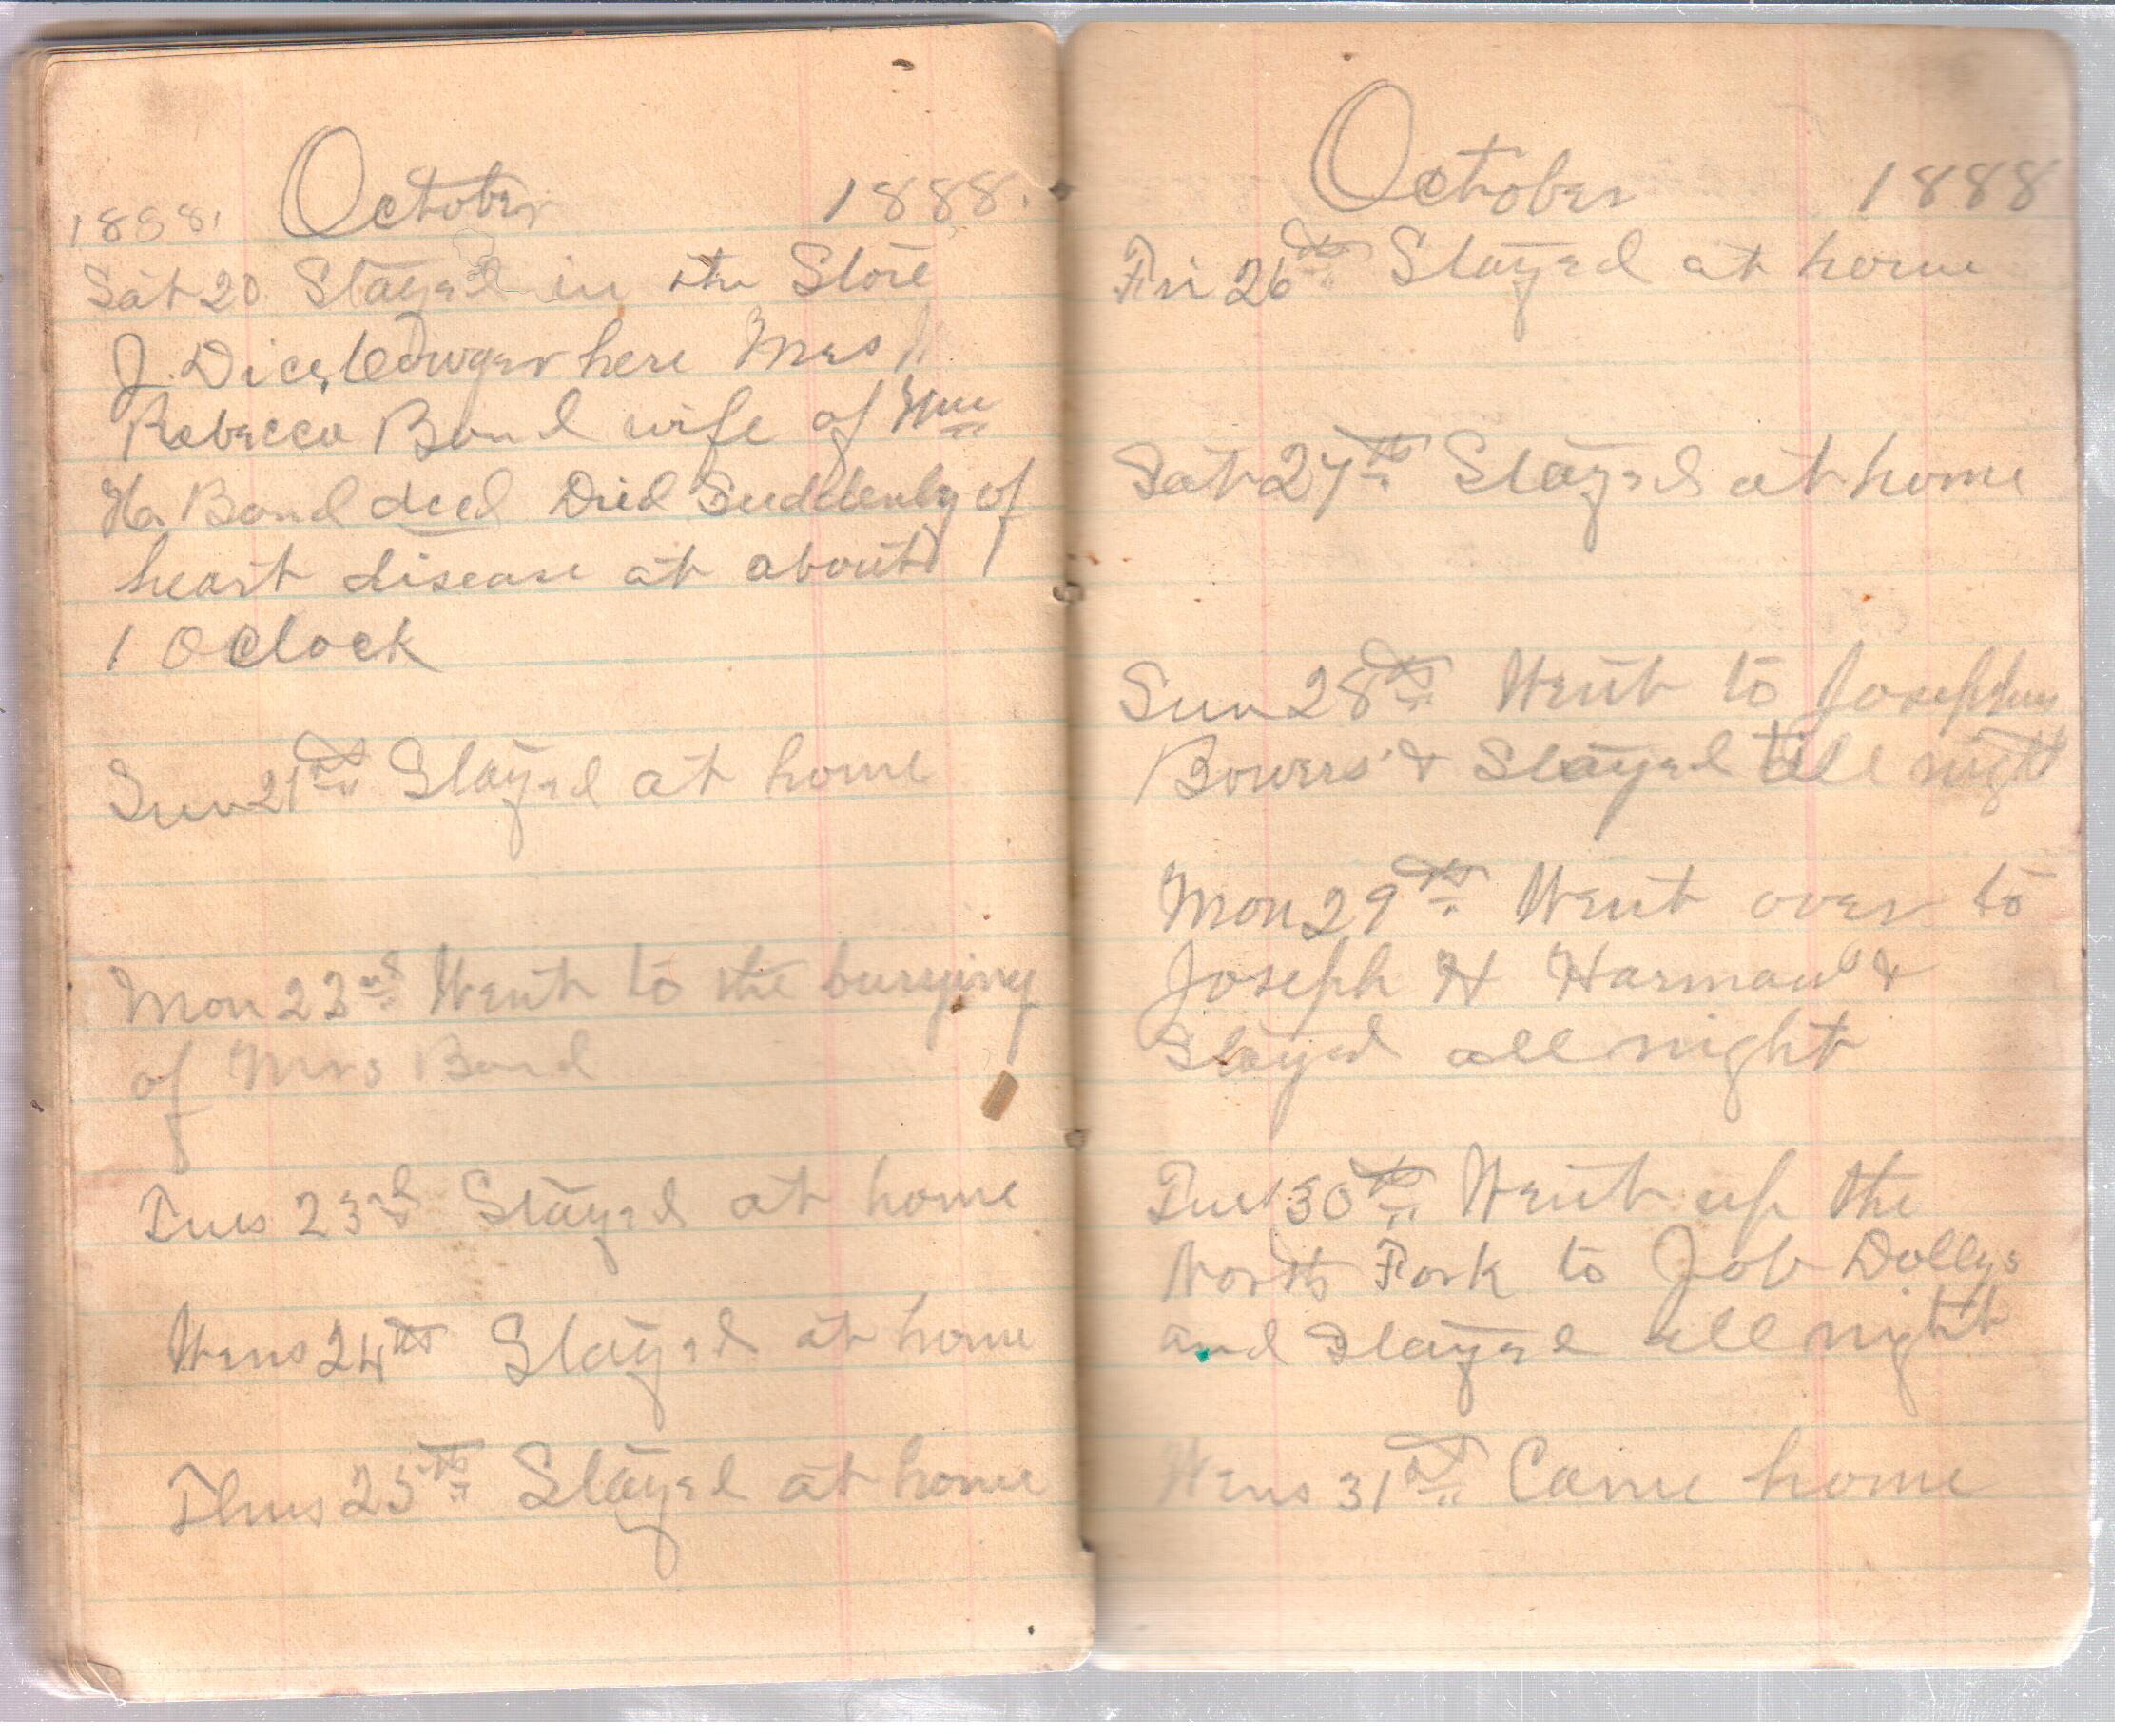 October 1888.
1888.
Sat 20 Stayed in the Store
J. Dice, here Mrs
Rebecca Bond wife of Wm
Bond decd Died Suddenly of
heart disease at about
1 OClock
Sun 21st Stayed at home
Mon 22nd Went to the burying
of Mrs Bond
Tues 23rd Stayed at home
Wens 24th Stayed at home
Thus 25th Stayed at home
October 1888
Fri 26th Stayed at home
Sat 27th Stayed at home
Sun 28th Went to Josephus
Bowers' & Stayed till night
Mon 29th Went over to
Joseph H Harman's &
Stayed all night
Tues 30th Went up the
North Fork to Job Dollys
and Stayed all night
Wens 31st Came home